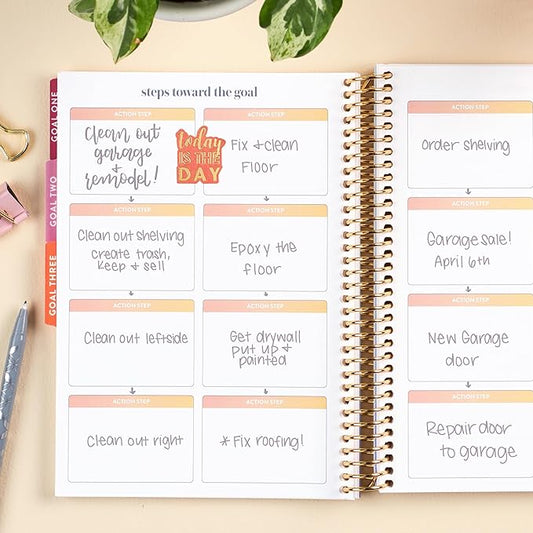 GOAL ONE
GOAL TWO
GOAL THREE
steps toward the goal
ACTION STEP
Clean out
garage
+
remodel!
today
IS THE
DAY
ACTION STEP
Clean out shelving
create trash,
keep & sell
ACTION STEP
Clean out leftside
ACTION STEP
Clean out right
ACTION STEP
Fix + clean
Floor
ACTION STEP
Epoxy the
floor
ACTION STEP
Get drywall
put up +
painted
ACTION STEP
* Fix roofing!
ACTION STEP
Order shelving
ACTION STEP
Garage sale!
April 6th
ACTION STEP
New Garage
door
ACTION STEP
Repair door
to garage